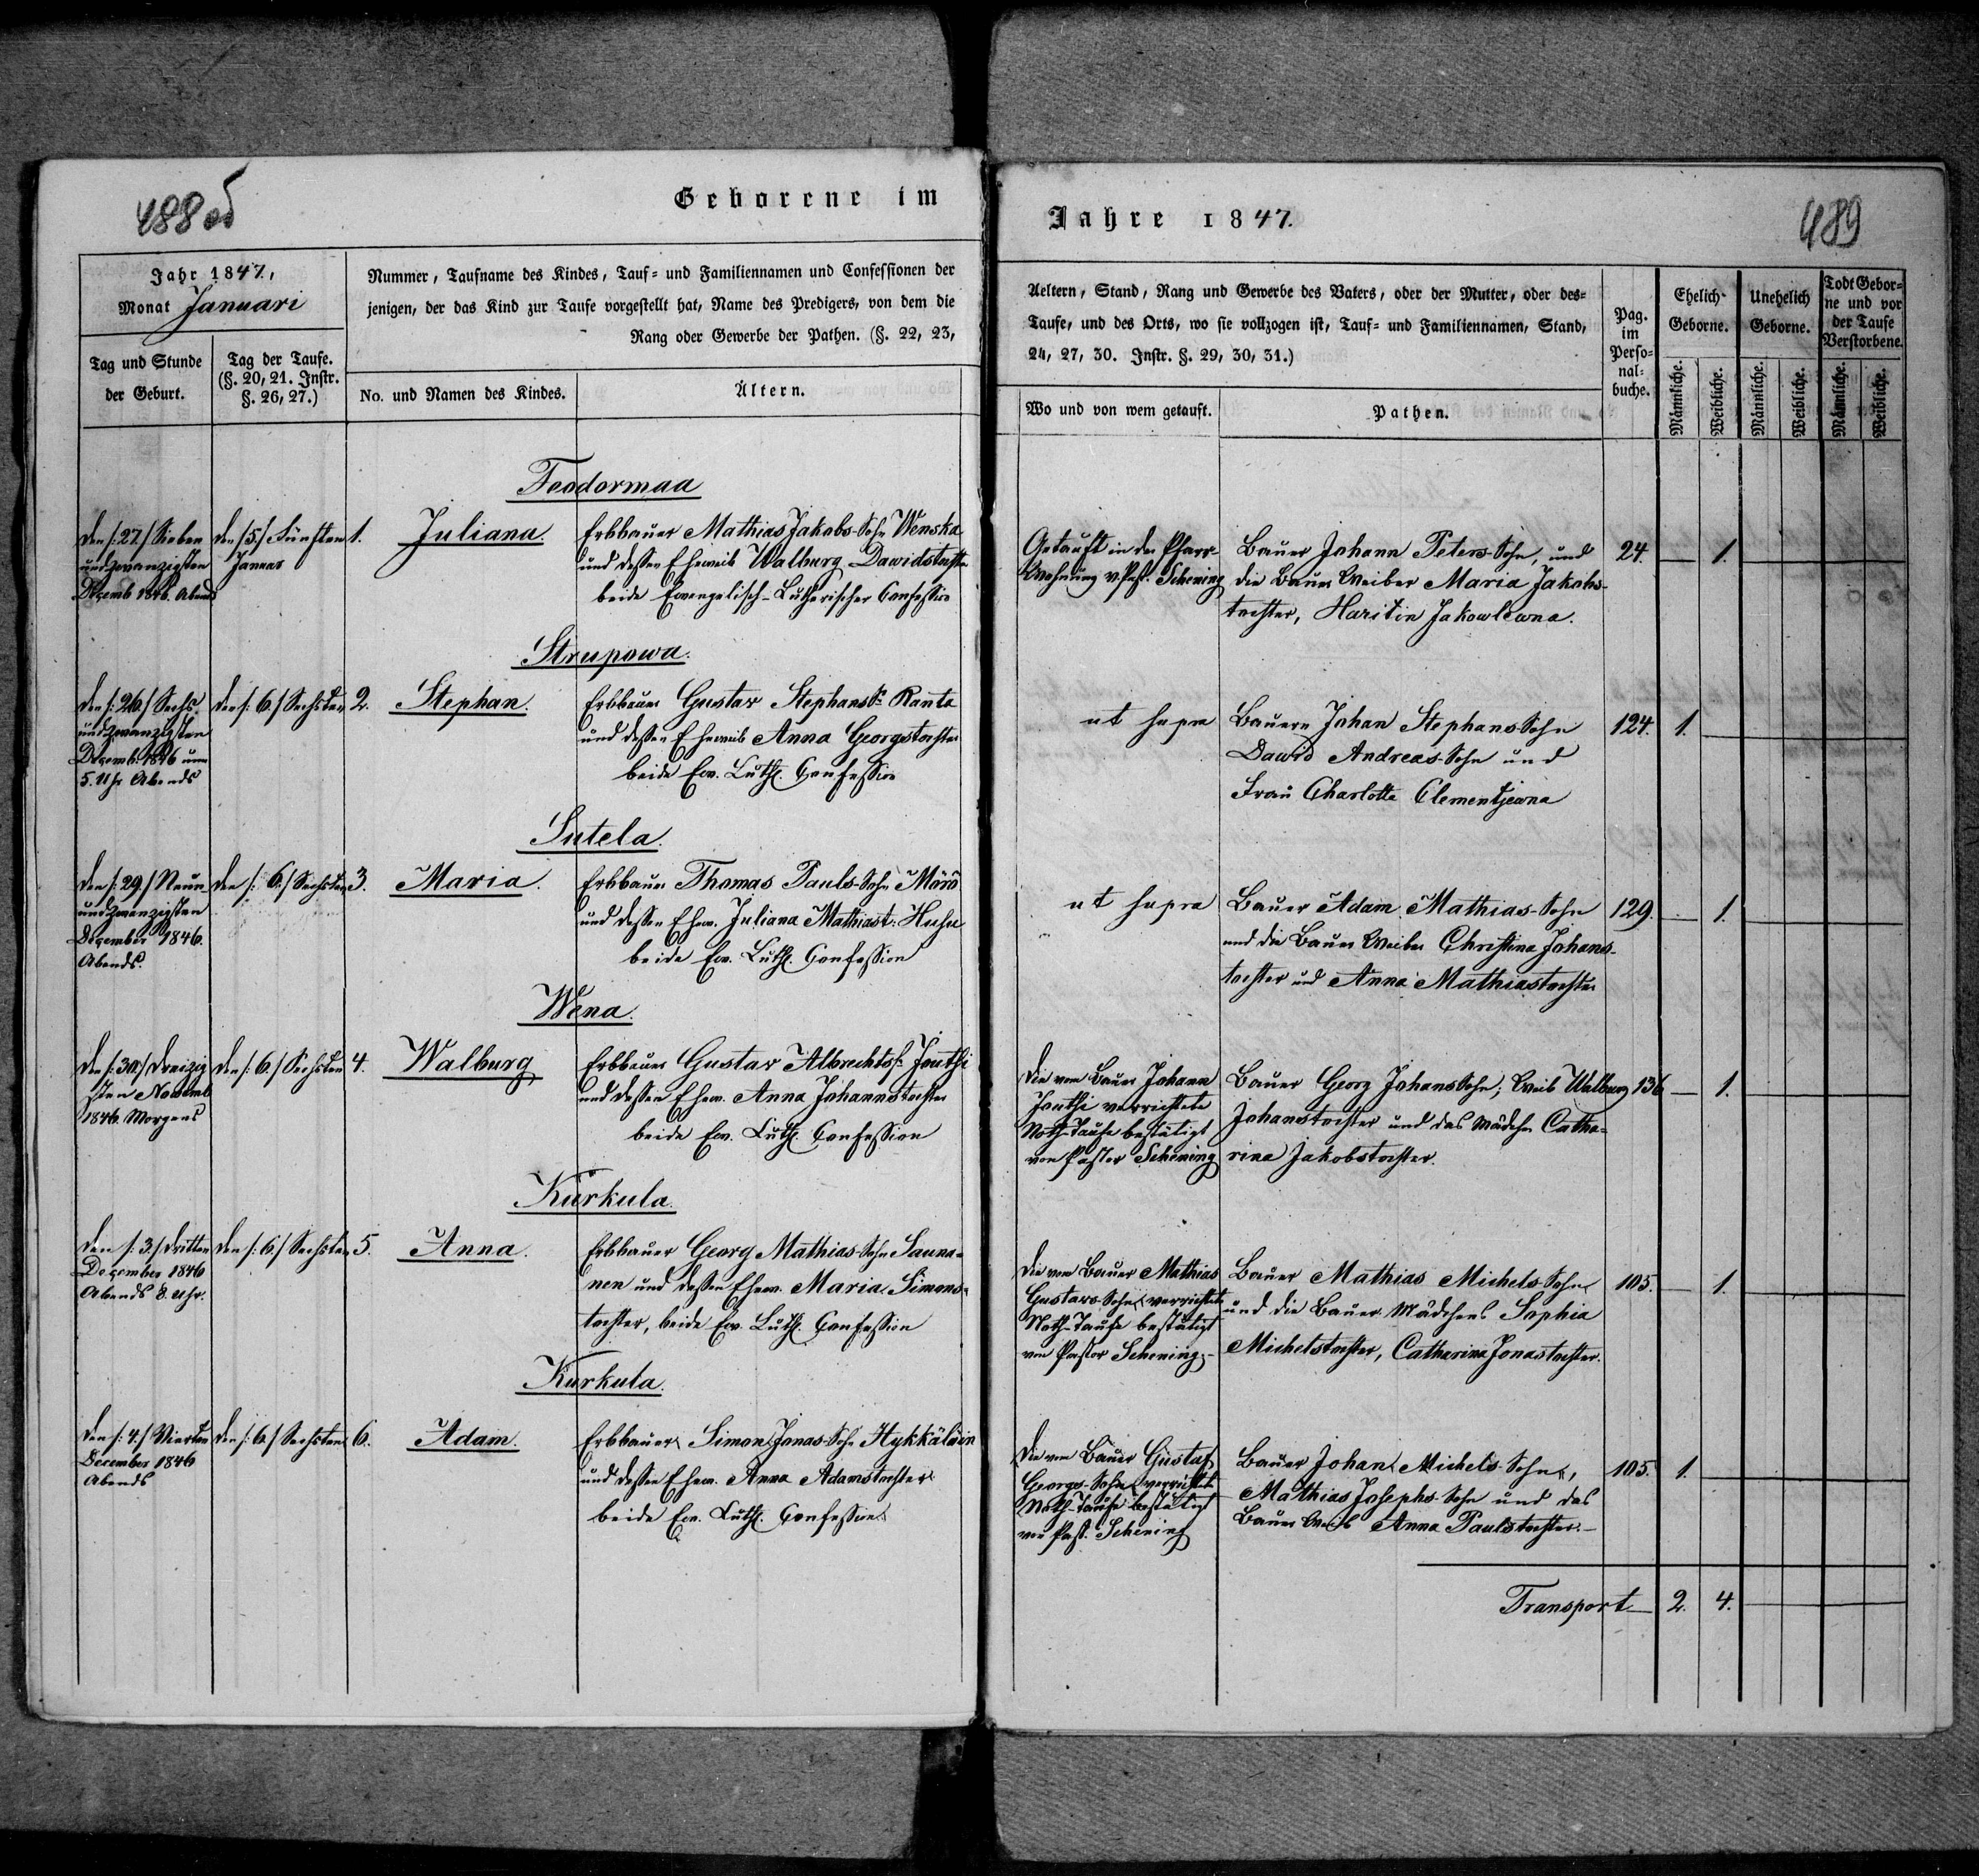 488 об
Geborene im
Jahr 1847,
Monat Januari
Nummer, Taufname des Kindes, Tauf- und Familiennamen und Confessionen der
jenigen, der das Kind zur Taufe vorgestellt hat, Name des Predigers, von dem die
Rang oder Gewerbe der Pathen. (§. 22, 23,
Tag und Stunde
der Geburt.
Tag der Taufe.
(§. 20, 21. Instr.
§. 26, 27.)
No. und Namen des Kindes.
Ältern.
Feodormaa
den /:27./ Sieben
undzwanzigsten
Dezemb 1846. Abend
den /:5./ Fünften
Januar
1.
Juliana.
Erbbauer Mathias Jakobs-Sohn Wenska
und dessen Eheweib Walburg Dawidstochter
beide Evangelisch-Lutherischer Confession
Strupowa.
den /:26./ Sechs
undzwanzigsten
Dezemb. 1846 um
5. Uhr Abends
den /:6./ Sechsten
2.
Stephan.
Erbbauer Gustav Stephanss. Ranta
und dessen Eheweib Anna Georgstochter
beide Ev. Luth. Confession
Sutela.
den /:29./ Neun
undzwanzigsten
Dezember 1846.
Abends.
den /:6./ Sechsten
3.
Maria.
Erbbauer Thomas Pauls-Sohn Mörö
und dessen Ehew. Juliana Mathiast. Huhu
beide Ev. Luth. Confession
Wena.
den /:30./ Dreizig
sten Novemb
1846 Morgens
den /:6./ Sechsten
4.
Walburg
Erbbauer Gustav Albrechtss. Jouthi
und dessen Ehew. Anna Johannstochter
beide Ev. Luth. Confession
Kurkula.
den /:3./ dritten
Dezember 1846
Abends 8. Uhr.
den /:6./ Sechsten
5.
Anna.
Erbbauer Georg Mathias-Sohn Sauna-
nen und dessen Ehew. Maria Simons-
tochter, beide Ev. Luth. Confession
Kurkula.
den /:4./ Vierten
December 1846
Abends
den /:6./ Sechsten
6.
Adam.
Erbbauer Simon Jonas-Sohn Hykkäläin
und dessen Ehew. Anna Adamstochter
beide Ev. Luth. Confession
Jahre 1847.
489
Aeltern, Stand, Rang und Gewerbe des Vaters, oder der Mutter, oder des-
Taufe, und des Orts, wo sie vollzogen ist, Tauf- und Familiennamen, Stand,
24, 27, 30. Instr. §. 29, 30, 31.)
Wo und von wem getauft.
Pathen.
Pag.
im
Perso-
nal-
buche.
Ehelich
Geborne.
Unehelich
Geborne.
Todt Gebor-
ne und vor
der Taufe
Verstorbene.
Männliche.
Weibliche.
Männliche.
Weibliche.
Männliche.
Weibliche.
Getauft in der Pfarr-
Wohnung v. Past. Schening
Bauer Johann Peters-Sohn, und
die Bauer Weiber Maria Jakobs-
tochter, Haritin Jakowlewna.
24.
1.
ut supra
Bauern Johan Stephans-Sohn
Dawid Andreas-Sohn und
Frau Charlotta Clementjewna
124.
1.
ut supra
Bauer Adam Mathias-Sohn
und die Bauer Weiber Christina Johans-
tochter und Anna Mathiastochter
129.
1.
Die vom Bauer Johann
Jouthi verrichtete
Noth-Taufe bestätigt
von Pastor Schening
Bauer Georg Johans Sohn; Weib Walburg
Johanstochter und das Mädchen Catha-
rina Jakobstochter.
136
1.
Die vom Bauer Mathias
Gustavs-Sohn verrichtete
Noth-Taufe bestätigt
von Pastor Schening.
Bauer Mathias Michels-Sohn
und die Bauer Mädchens Sophia
Michelstochter, Catharina Jonastochter.
105.
1.
Die vom Bauer Gustaf
Georgs-Sohn verrichtete
Noth-Taufe bestätigt
von Past. Schening
Bauer Johan Michels-Sohn,
Mathias Josephs-Sohn und das
Bauer Weib Anna Paulstochter.
105.
1.
Transport
2.
4.